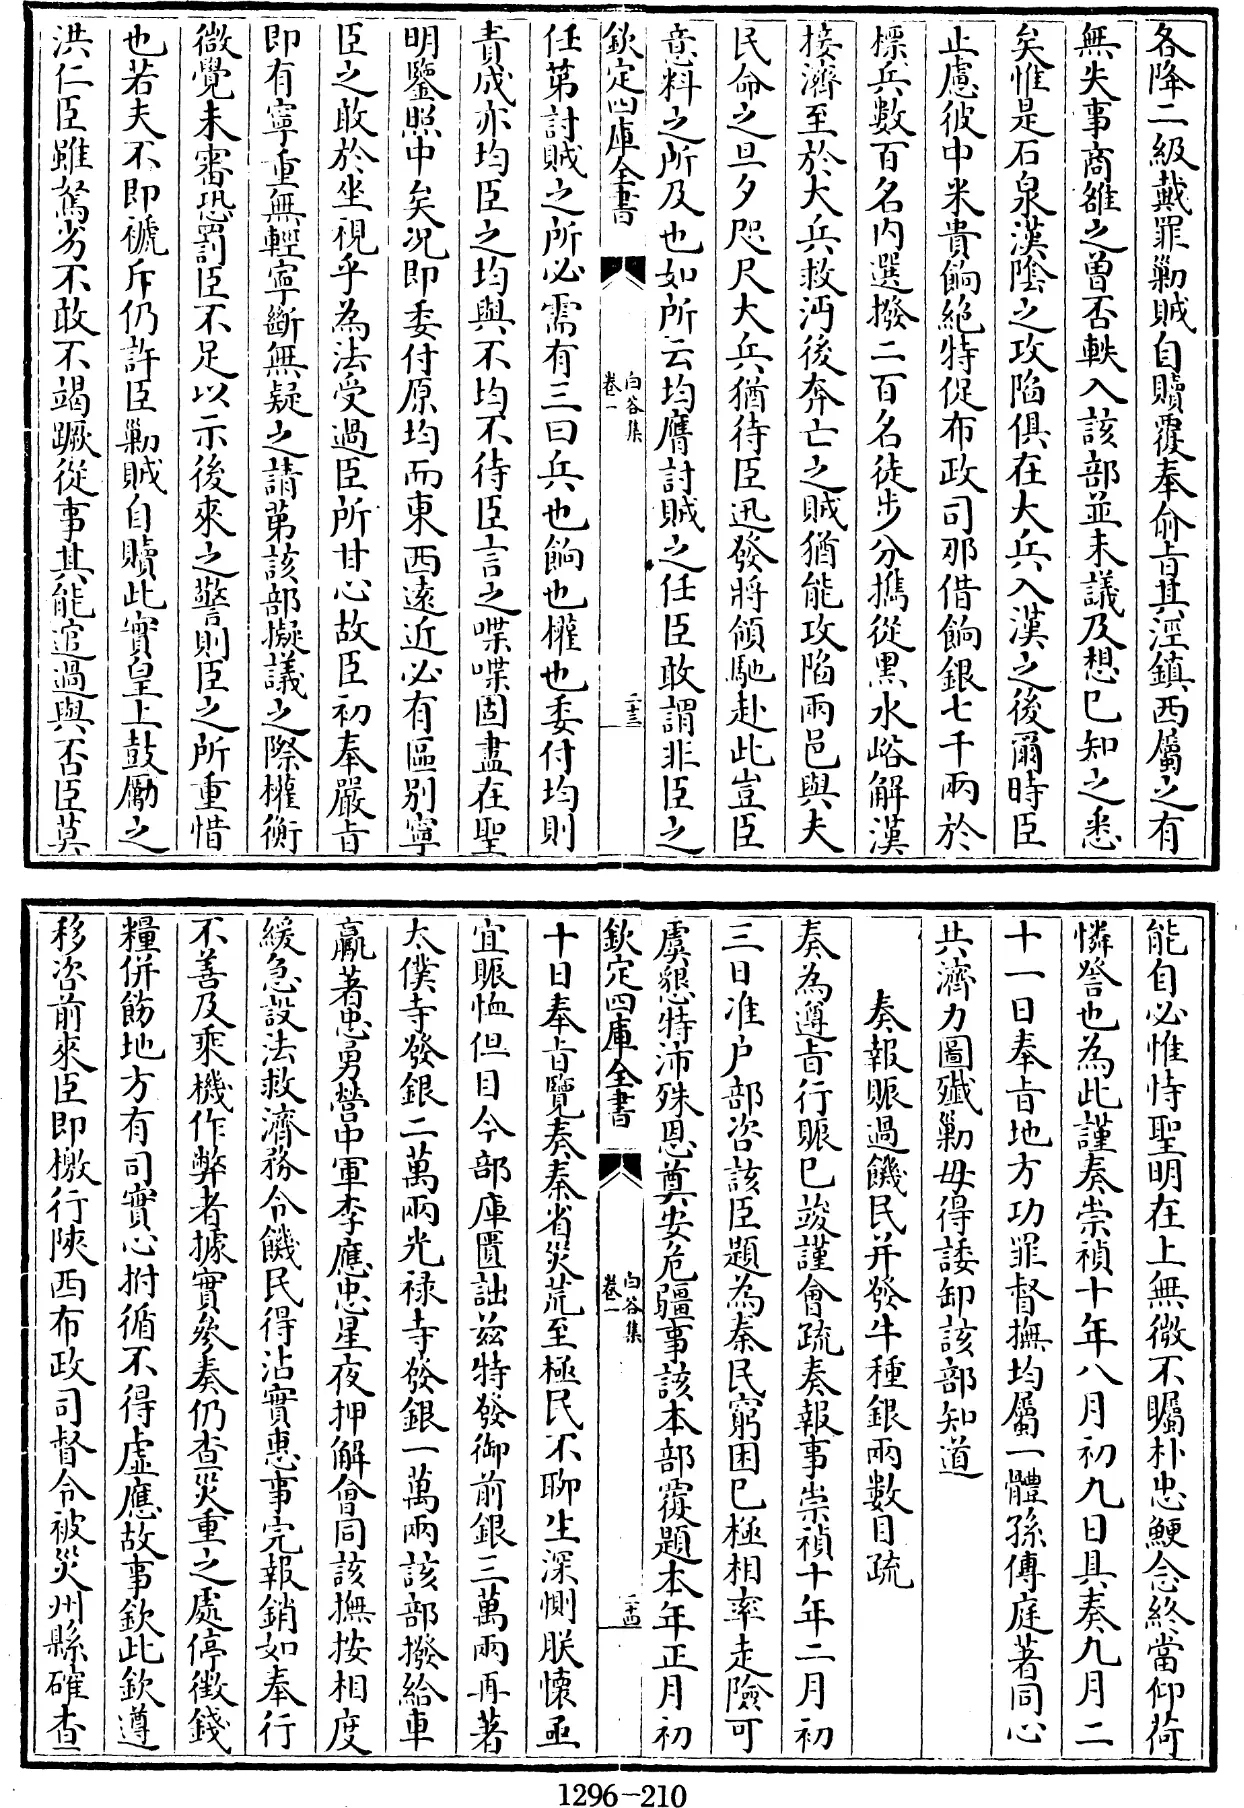 各降二級戴罪勦賊自贖覆奉俞旨其涇鎮西屬之有
無失事商雒之曽否軼入該部並未議及想已知之悉
矣惟是石泉漢陰之攻陷俱在大兵入漢之後爾時臣
止慮彼中米貴餉絶特促布政司那借餉銀七千兩於
標兵數百名内選撥二百名徒步分攜從黒水峪解漢
接濟至於大兵救沔後奔亡之賊猶能攻陷兩邑與夫
民命之旦夕咫尺大兵猶待臣迅發將領馳赴此豈臣
意料之所及也如所云均膺討賊之任臣敢謂非臣之
欽定四庫全書
白谷集
卷一
二十三
任第討賊之所必需有三曰兵也餉也權也委付均則
責成亦均臣之均與不均不待臣言之喋喋固盡在聖
明鑒照中矣况即委付原均而東西逺近必有區别寧
臣之敢於坐視乎為法受過臣所甘心故臣初奉嚴旨
即有寧重無輕寧斷無疑之請第該部擬議之際權衡
微覺未審恐罰臣不足以示後來之警則臣之所重惜
也若夫不即褫斥仍許臣勦賊自贖此實皇上鼓勵之
洪仁臣雖駑劣不敢不竭蹶從事其能逭過與否臣莫
能自必惟恃聖明在上無微不矚朴忠鯁念終當仰荷
憐詧也為此謹奏崇禎十年八月初九日具奏九月二
十一日奉旨地方功罪督撫均屬一體孫傳庭著同心
共濟力圖殲勦毋得諉卸該部知道
奏報賑過饑民并發牛種銀兩數目疏
奏為遵旨行賑已竣謹會疏奏報事崇禎十年二月初
三日准户部咨該臣題為秦民窮困已極相率走險可
虞懇特沛殊恩奠安危疆事該本部覆題本年正月初
欽定四庫全書
白谷集
卷一
二十四
十日奉旨覽奏秦省災荒至極民不聊生深惻朕懷亟
宜賑恤但目今部庫匱詘兹特發御前銀三萬兩再著
太僕寺發銀二萬兩光禄寺發銀一萬兩該部撥給車
羸著忠勇營中軍李應忠星夜押解會同該撫按相度
緩急設法救濟務令饑民得沾實惠事完報銷如奉行
不善及乘機作弊者據實參奏仍查災重之處停徴錢
糧併飭地方有司實心拊循不得虚應故事欽此欽遵
移咨前來臣即檄行陜西布政司督令被災州縣確查
1296-210